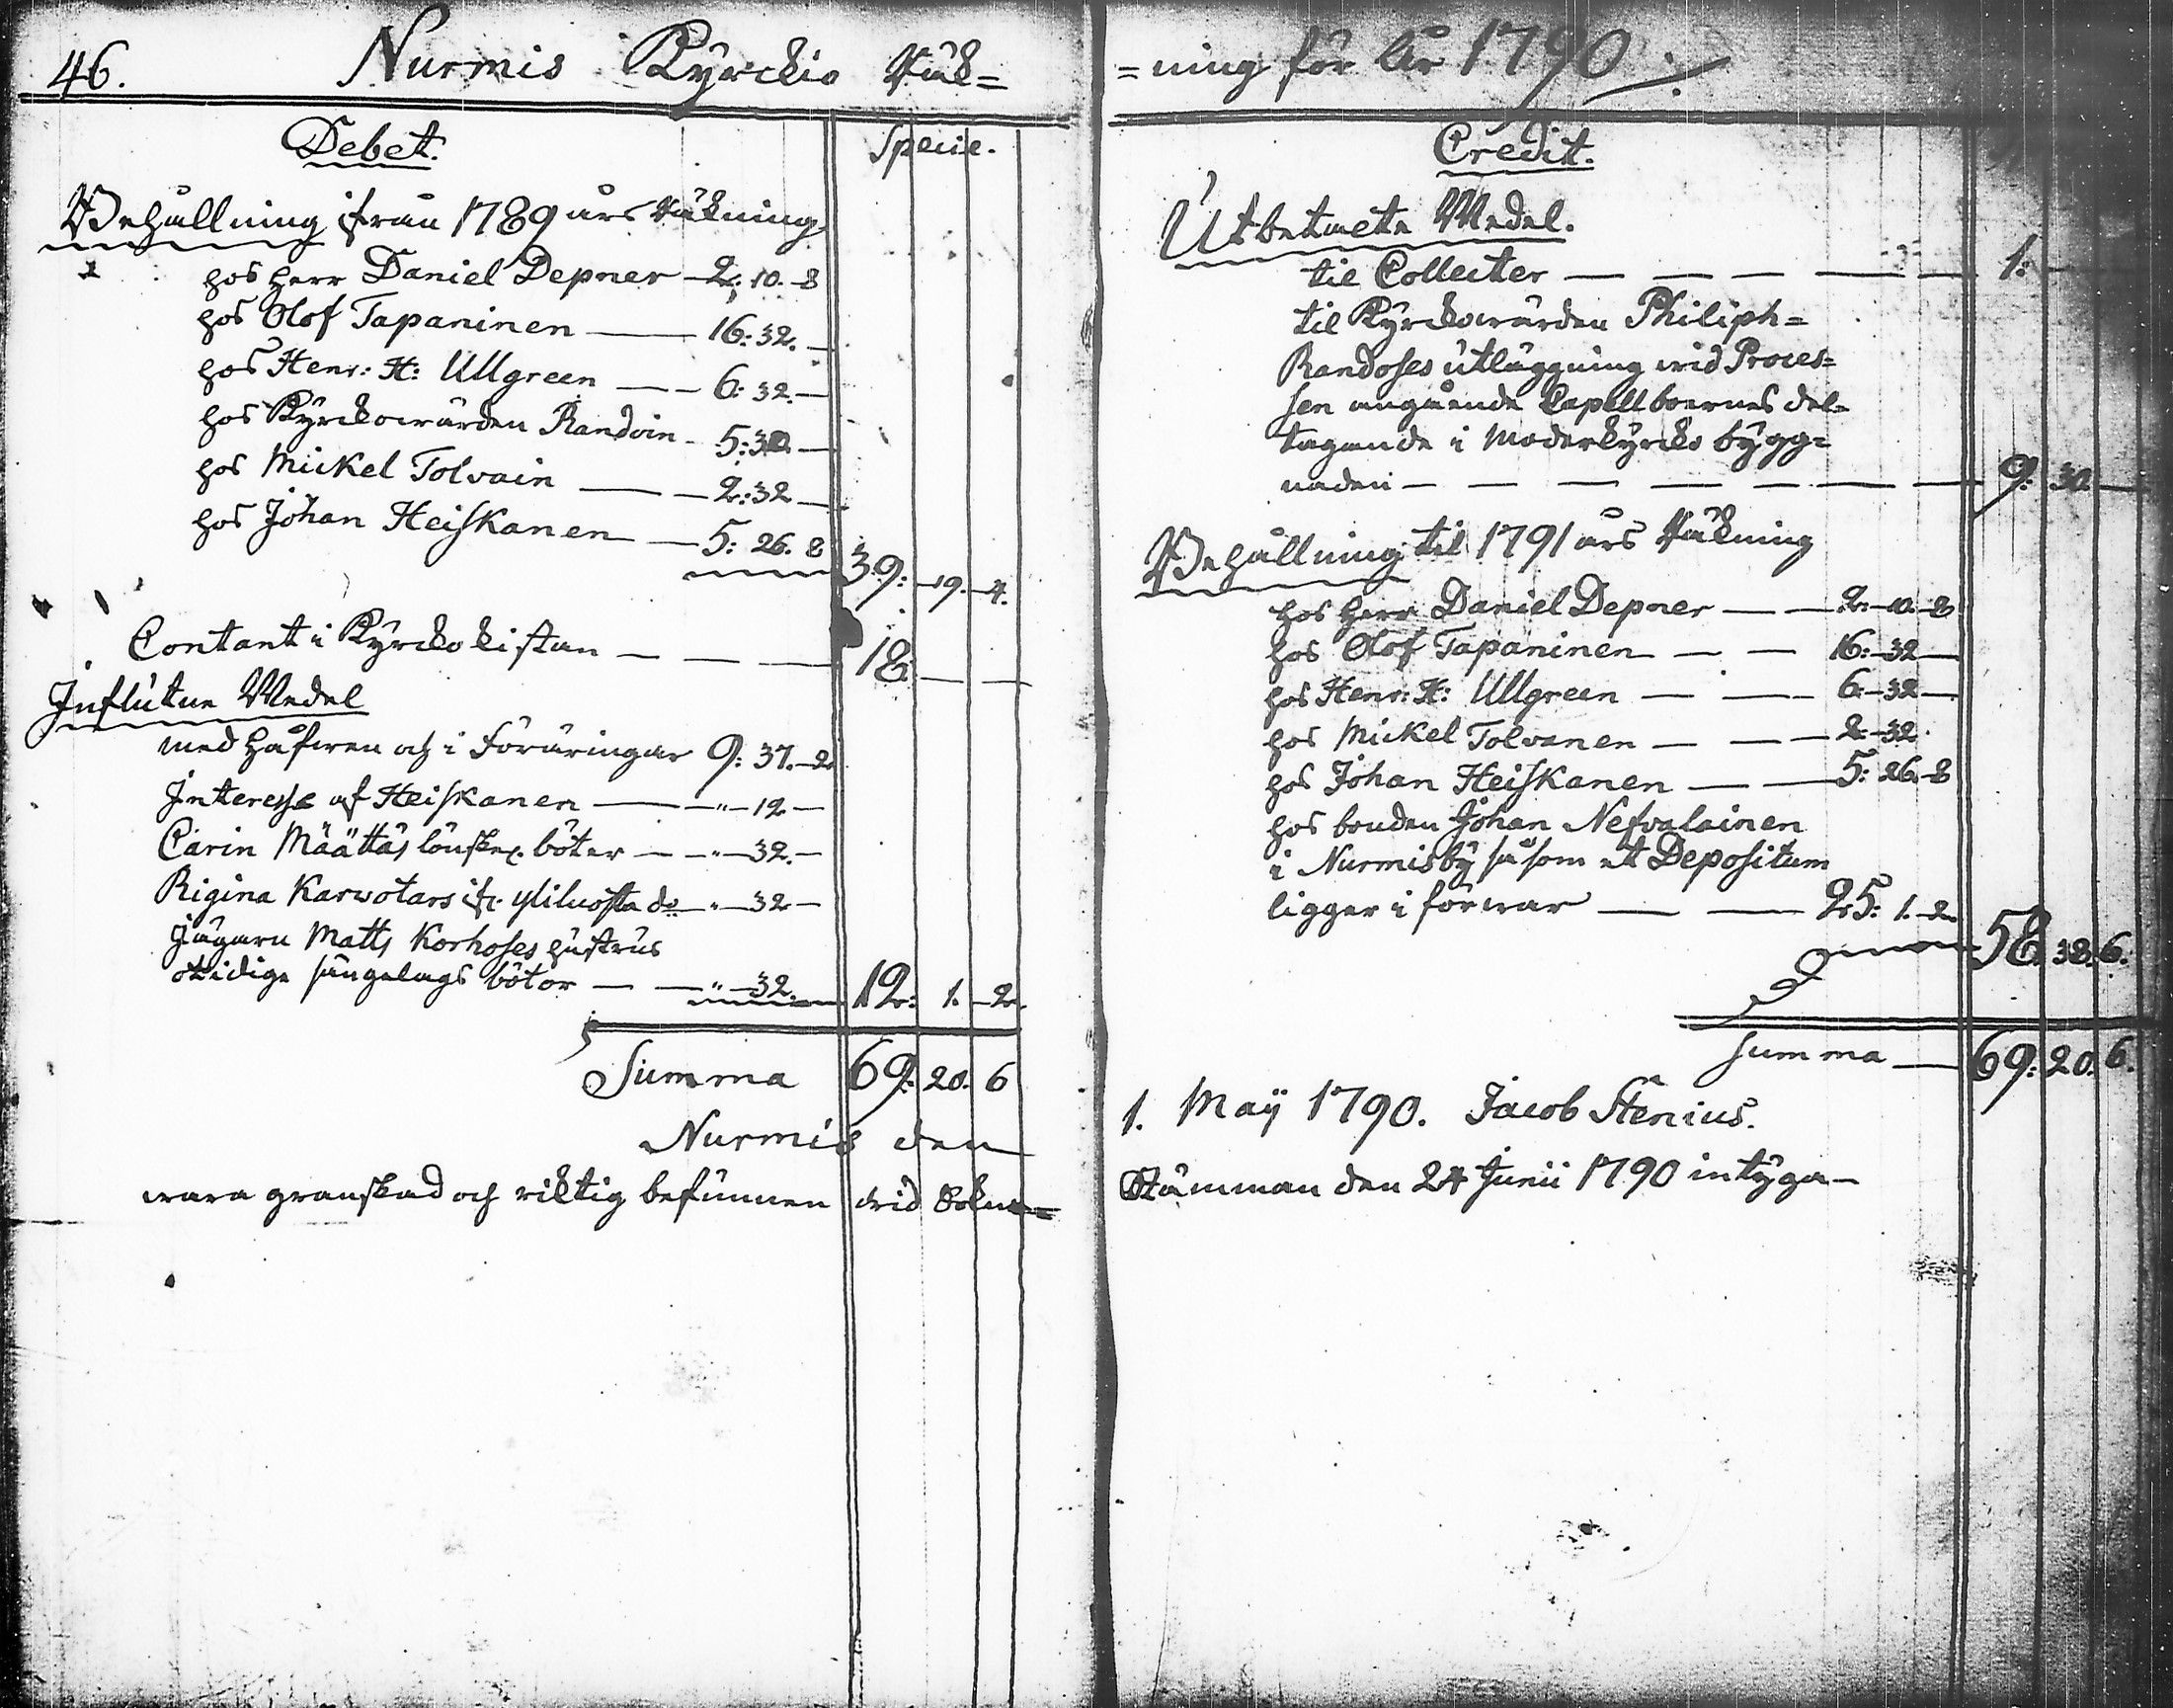 46. Nurmis Kyrckio Räk=
Debet. Specie.
Behållning ifrån 1789 års Räkning
hos Herr Daniel Depner — 2: 10. 8
hos Olof Tapaninen — 16: 32. —
hos Henr: H: Ullgreen — — 6: 32. —
hos Kyrckowärden Randoin — 5: 30. —
hos Mickel Tolvain — — 2: 32 —
hos Johan Heiskanen — 5: 26. 8 39: 19. 4.
Contant i Kyrckokistan — — — 18. — —
Influtne Medel
med Håfwen och i Föräringar 9: 37. 2.
Interesse af Heiskanen — — " — 12 —
Carin Määttäs lönsk. böter — — " — 32. —
Rigina Karwotars ifr. yliluosta do — " — 32 —
Jägarn Matts Korhoses hustrus
otidige sängelags böter — — " — 32. 12: 1. 2.
Summa 69: 20. 6
Nurmis den
wara granskad och riktig befunnen wid Sokne=
=ning för År 1790
Credit.
Utbetacte Medel.
til Collecter — — — — — 1: —
til Kyrckowärden Philiph=
Randoses utläggning wid Proces=
sen angående Capellboernes del=
tagande i Moderkyrcko bygg=
naden — — — — — — — 9: 30. —
Behållning til 1791 års Räkning
hos Herr Daniel Depner — — 2: 10. 8
hos Olof Tapaninen — — 16: 32 —
hos Henr: H: Ullgreen — — 6: 32 —
hos Mickel Tolvanen — — 2: 32.
hos Johan Heiskanen — — 5: 26. 8
hos bonden Johan Nefvalainen
i Nurmisby såsom et Depositum
ligger i förwar — — 25: 1. 2. 58. 38. 6.
Summa — 69: 20. 6.
1. Maij 1790. Jacob Stenius.
Stämman den 24 Junii 1790 intyga —